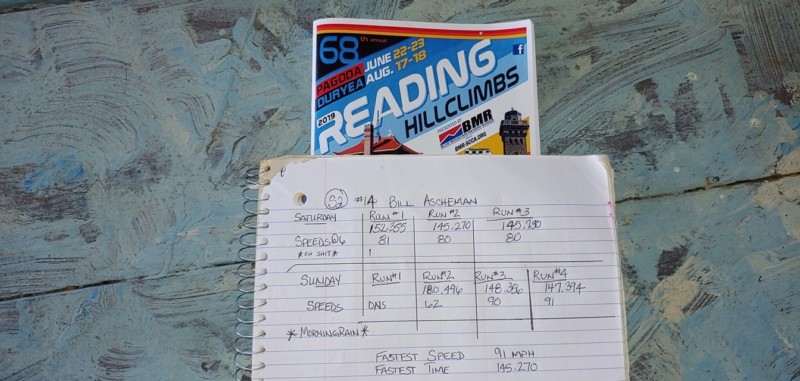 68th annual
PAGODA JUNE 22-23
DURYEA AUG. 17-18
2019 READING
HILLCLIMBS
PRESENTED BY
BMR
BMR-SCCA.ORG
S2 #14 BILL ASCHEMAN
SATURDAY RUN #1 RUN #2 RUN #3
152.355 145.270 145.790
SPEEDS 81 80 80
*OH SHIT*
SUNDAY RUN #1 RUN #2 RUN #3 RUN #4
180.496 148.386 147.394
SPEEDS DNS 62 90 91
*MORNING RAIN*
FASTEST SPEED 91 MPH
FASTEST TIME 145.270